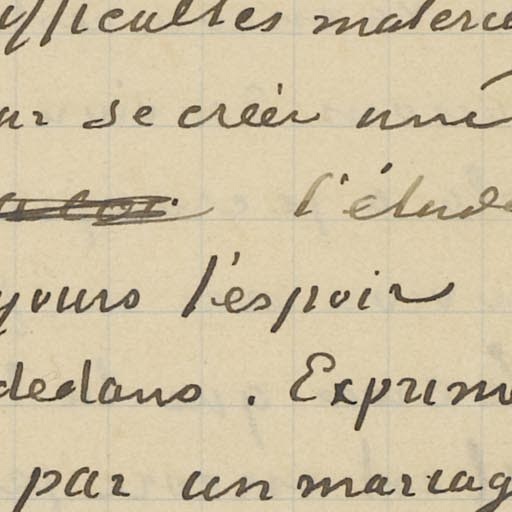 ifficultés matérie
ur se créer une
l'étude
jours l'espoir
dedans. Exprime
par un mariag